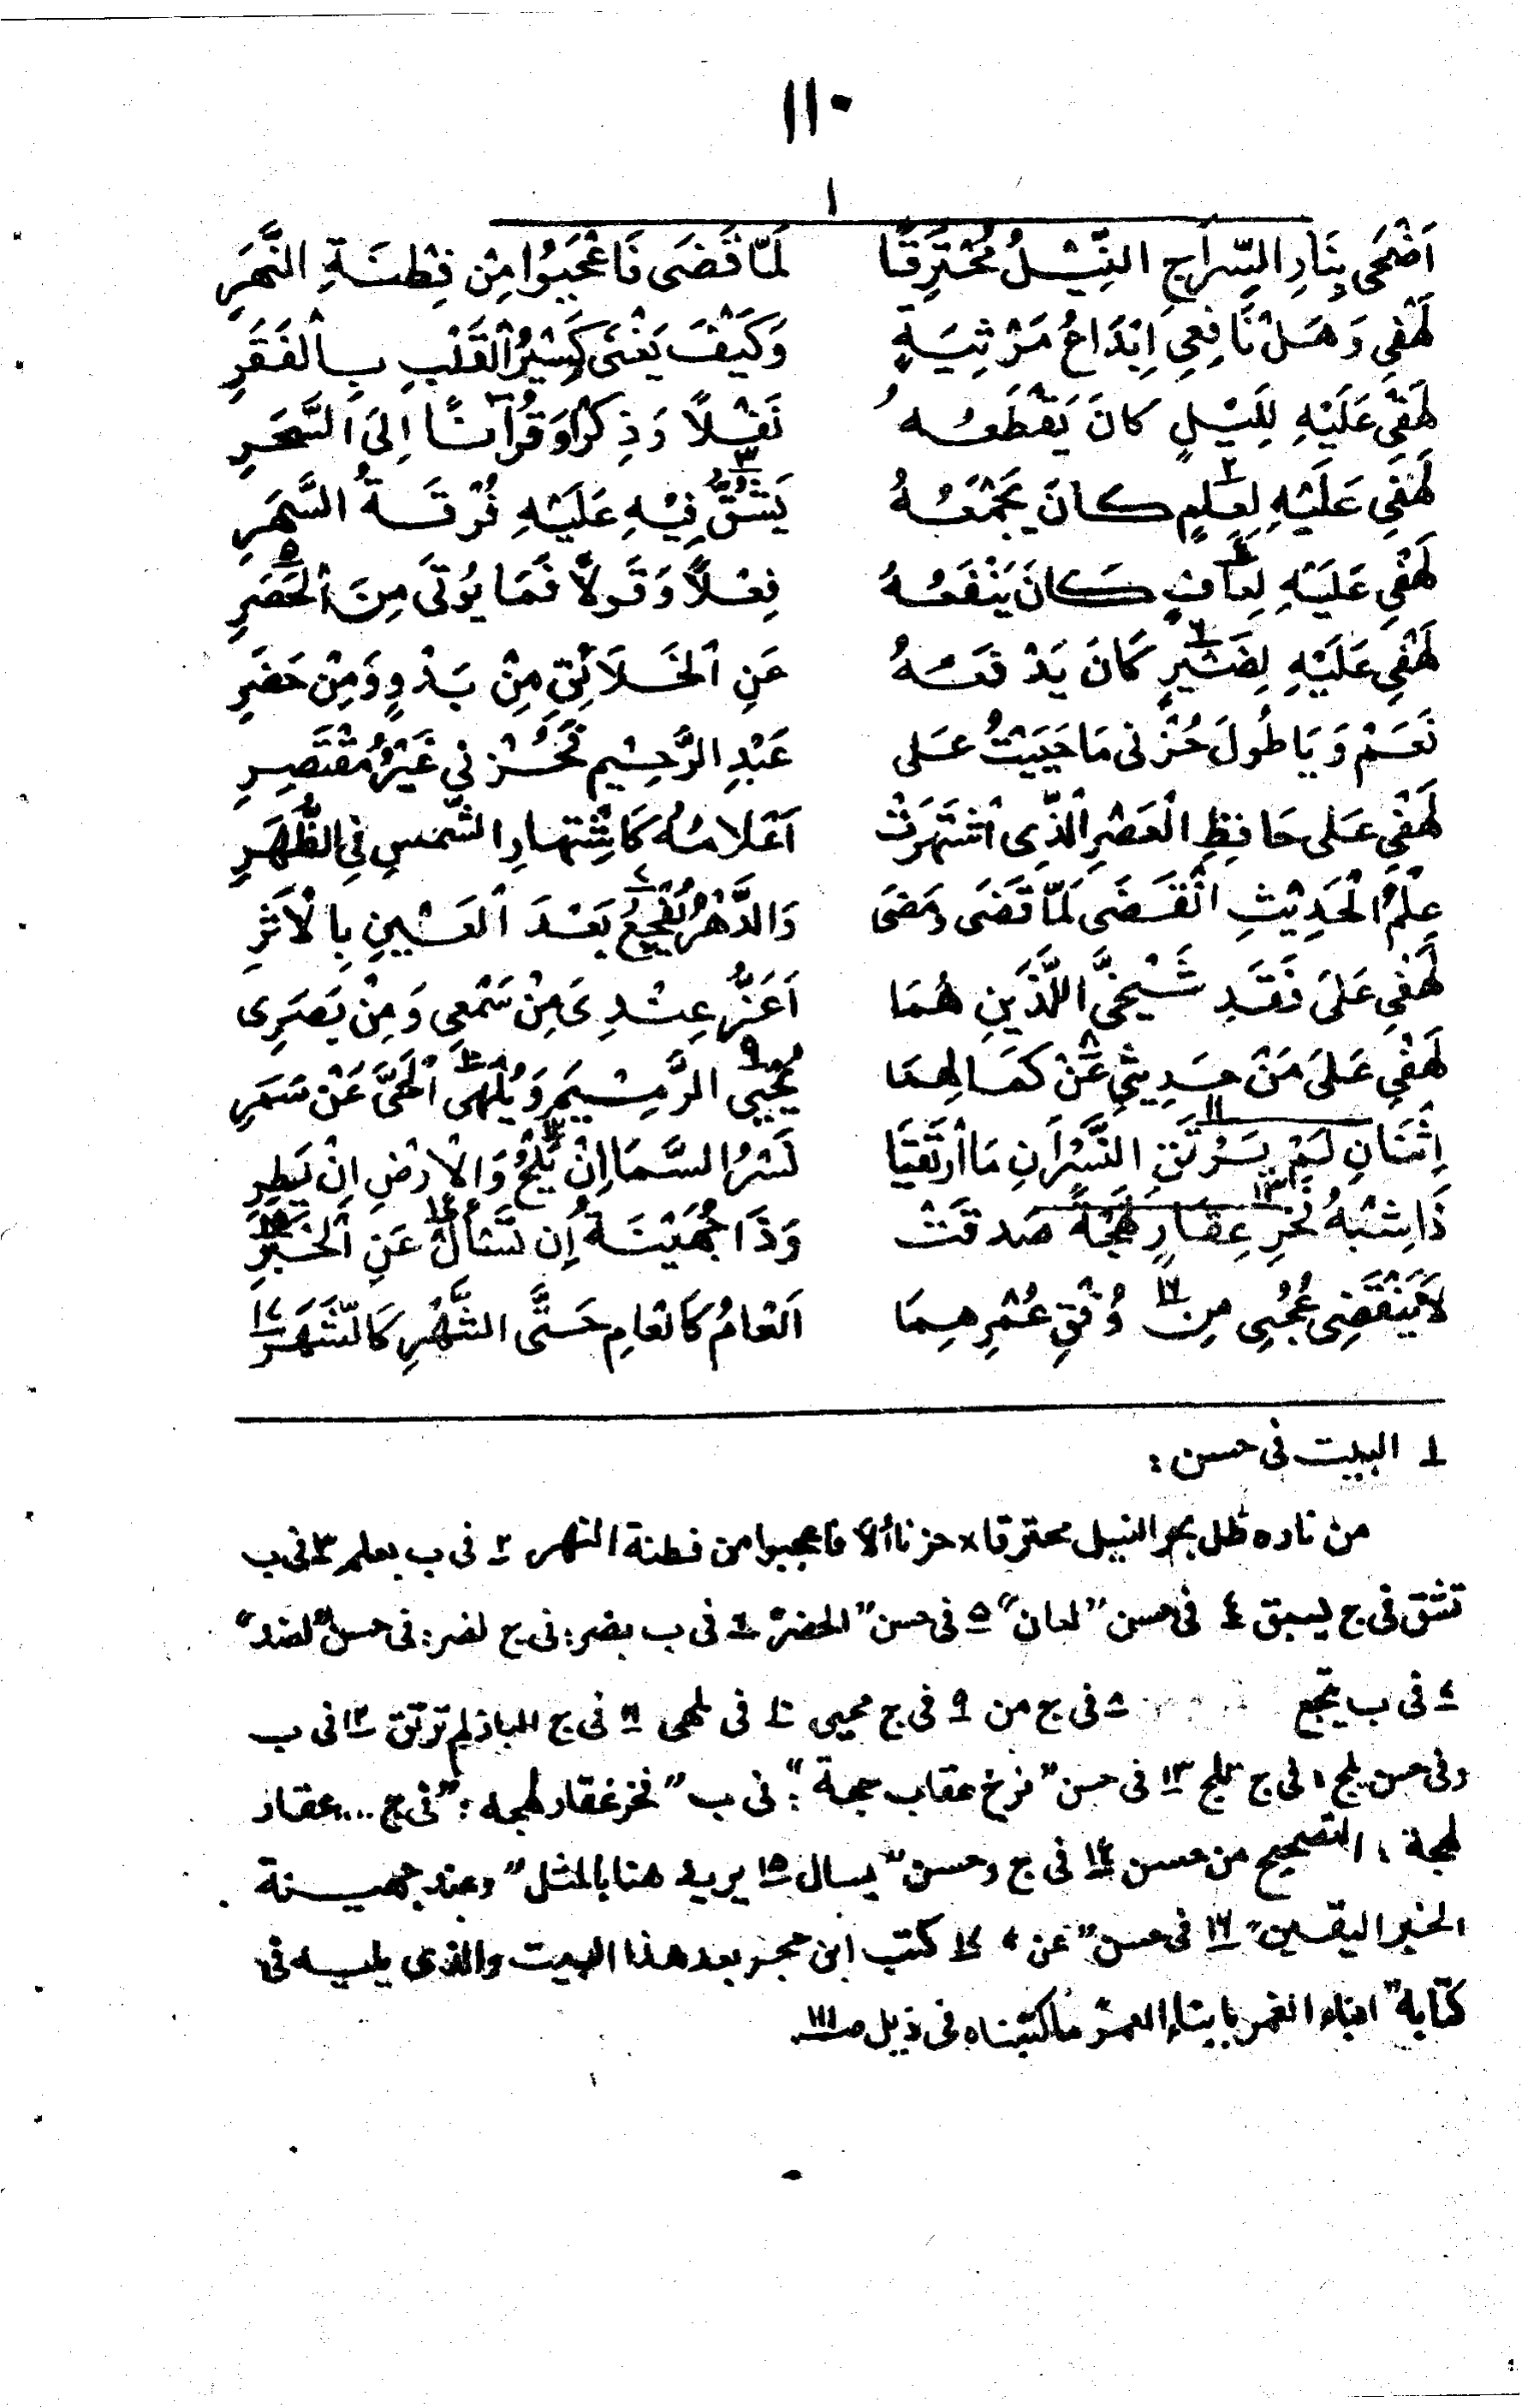 ١١٠
١
اَضْحَى بِنَارِ السِّرَاجِ النِّيْلُ مُحْتَرِقًا لَمّا قَضَى فَاعْجَبُوا مِنْ فِطْنَةِ النَّهَرِ
لَهْفِي وَهَلْ نَافِعِي اِبْدَاعُ مَرْثِيَةٍ وَكَيْفَ يَغْنَى كَسِيْرُ الْقَلْبِ بِالْفَقَرِ
لَهْفِي عَلَيْهِ لِلَيْلٍ كَانَ يَقْطَعُهُ نَفْلًا وَذِكْرًا وَقُرْآنًا اِلَى السَّحَرِ
لَهْفِي عَلَيْهِ لِعِلْمٍ٢ كَانَ يَجْمَعُهُ يَشُقُّ٣ فِيْهِ عَلَيْهِ فُرْقَةُ السَّهَرِ
لَهْفِي عَلَيْهِ لِعَافٍ٤ كَانَ يَنْفَعُهُ فِعْلًا وَقَوْلًا فَمَا يُوْتَى مِنَ الْحَصَرِ٥
لَهْفِي عَلَيْهِ لِضَيْرٍ٦ كَانَ يَدْفَعُهُ عَنِ الْخَلَائِقِ مِنْ بَدْوٍ وَمِنْ حَضَرِ
نَعَمْ وَيَا طُولَ حُزْنِى مَا حَيِيْتُ عَلى عَبْدِ الرَّحِيْمِ فَحُزْنِي غَيْرُ مُقْتَصِرِ
لَهْفِي عَلى حَافِظِ الْعَصْرِ الَّذِى اشْتَهَرَتْ اَعْلَامُهُ كَاشْتِهَارِ الشَّمْسِ فِي الظُّهَرِ
عِلْمُ الْحَدِيْثِ انْقَضَى لَمّا قَضَى وَمَضَى وَالدَّهْرُ يُفْجِعُ٧ بَعْدَ الْعَيْنِ بِالْاَثَرِ
لَهْفِي عَلَى فَقْدِ شَيْخَيَّ اللَّذَيْنِ هُمَا اَعَزُّ عِنْدِىَ مِنْ سَمْعِي وَمِنْ بَصَرِى
لَهْفِي عَلَى مَنْ حَدِيثِي عَنْ٨ كَمَالِهِمَا يُحْيِي٩ الرَّمِيْمَ وَيُلْهِى١٠ الْحَيَّ عَنْ سَمَرِ
اِثْنَانِ لَمْ يَرْتَقِ١١ النَّسْرَانِ مَا ارْتَقَيَا نَسْرُ السَّمَا اِنْ يَلُحْ١٢ وَالْاَرْضِ اِنْ يَطِرِ
ذَا شِبْهُ نَخْرِ عِقَارٍ لَهْجَةً١٣ صَدَقَتْ وَذَا جُهَيْنَةُ اِن تَسْأَلْ١٤ عَنِ الْخَبَرِ١٥
لَا يَنْقَضِى عُجُبِى مِنْ١٦ وُفْقِ عُمْرِهِمَا الْعَامُ كَالْعَامِ حَتَّى الشَّهْرِ كَالشَّهَرِ١٧
١ البيت فى حسن :
من ناره ظل بحر النيل محترقا × حزنا ألا فاعجبوا من فطنة النهر ٢ فى ب بعلم ٣ فى ب
تشق فى ج ليسبق ٤ فى حسن "لعان" ٥ فى حسن "الحضر" ٦ فى ب بضر : فى ج لضر : فى حسن "لضد"
٧ فى ب يتجع ٨ فى ج من ٩ فى ج محيى ١٠ فى لهى ١١ فى ج لم ترتق ١٢ فى ب
وفى حسن يلج ، فى ج تلج ١٣ فى حسن "فرخ عقاب حجة" : فى ب "نخر غقار لهجه" : فى ج ... عقار
لهجة ، التصحيح من حسن ١٤ فى ج وحسن "يسال ١٥ يريد هنا بالمثل "وعند جهينة
الخبر اليقين" ١٦ فى حسن "عن" ١٧ كتب ابن حجر بعد هذا البيت والذى يليه فى
كتابه "انباء الغمر بابناء العمر" ما كتبناه فى ذيل صـ ١١١